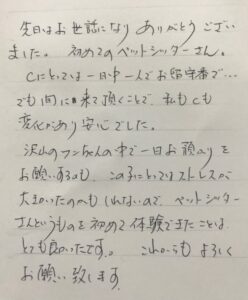 先日はお世話になり ありがとうござい
ました。 初めてのペットシッターさん。
Cにとっては一日中一人でお留守番で…
でも間に来て頂くことで、私もCも
変化があり安心でした。
沢山のワンちゃんの中で一日お預かりを
お願いするのも、この子にとってはストレスが
大きかったのかもしれないので、ペットシッター
さんというものを初めて体験できたことは、
とても良かったです。 これからも よろしく
お願い致します